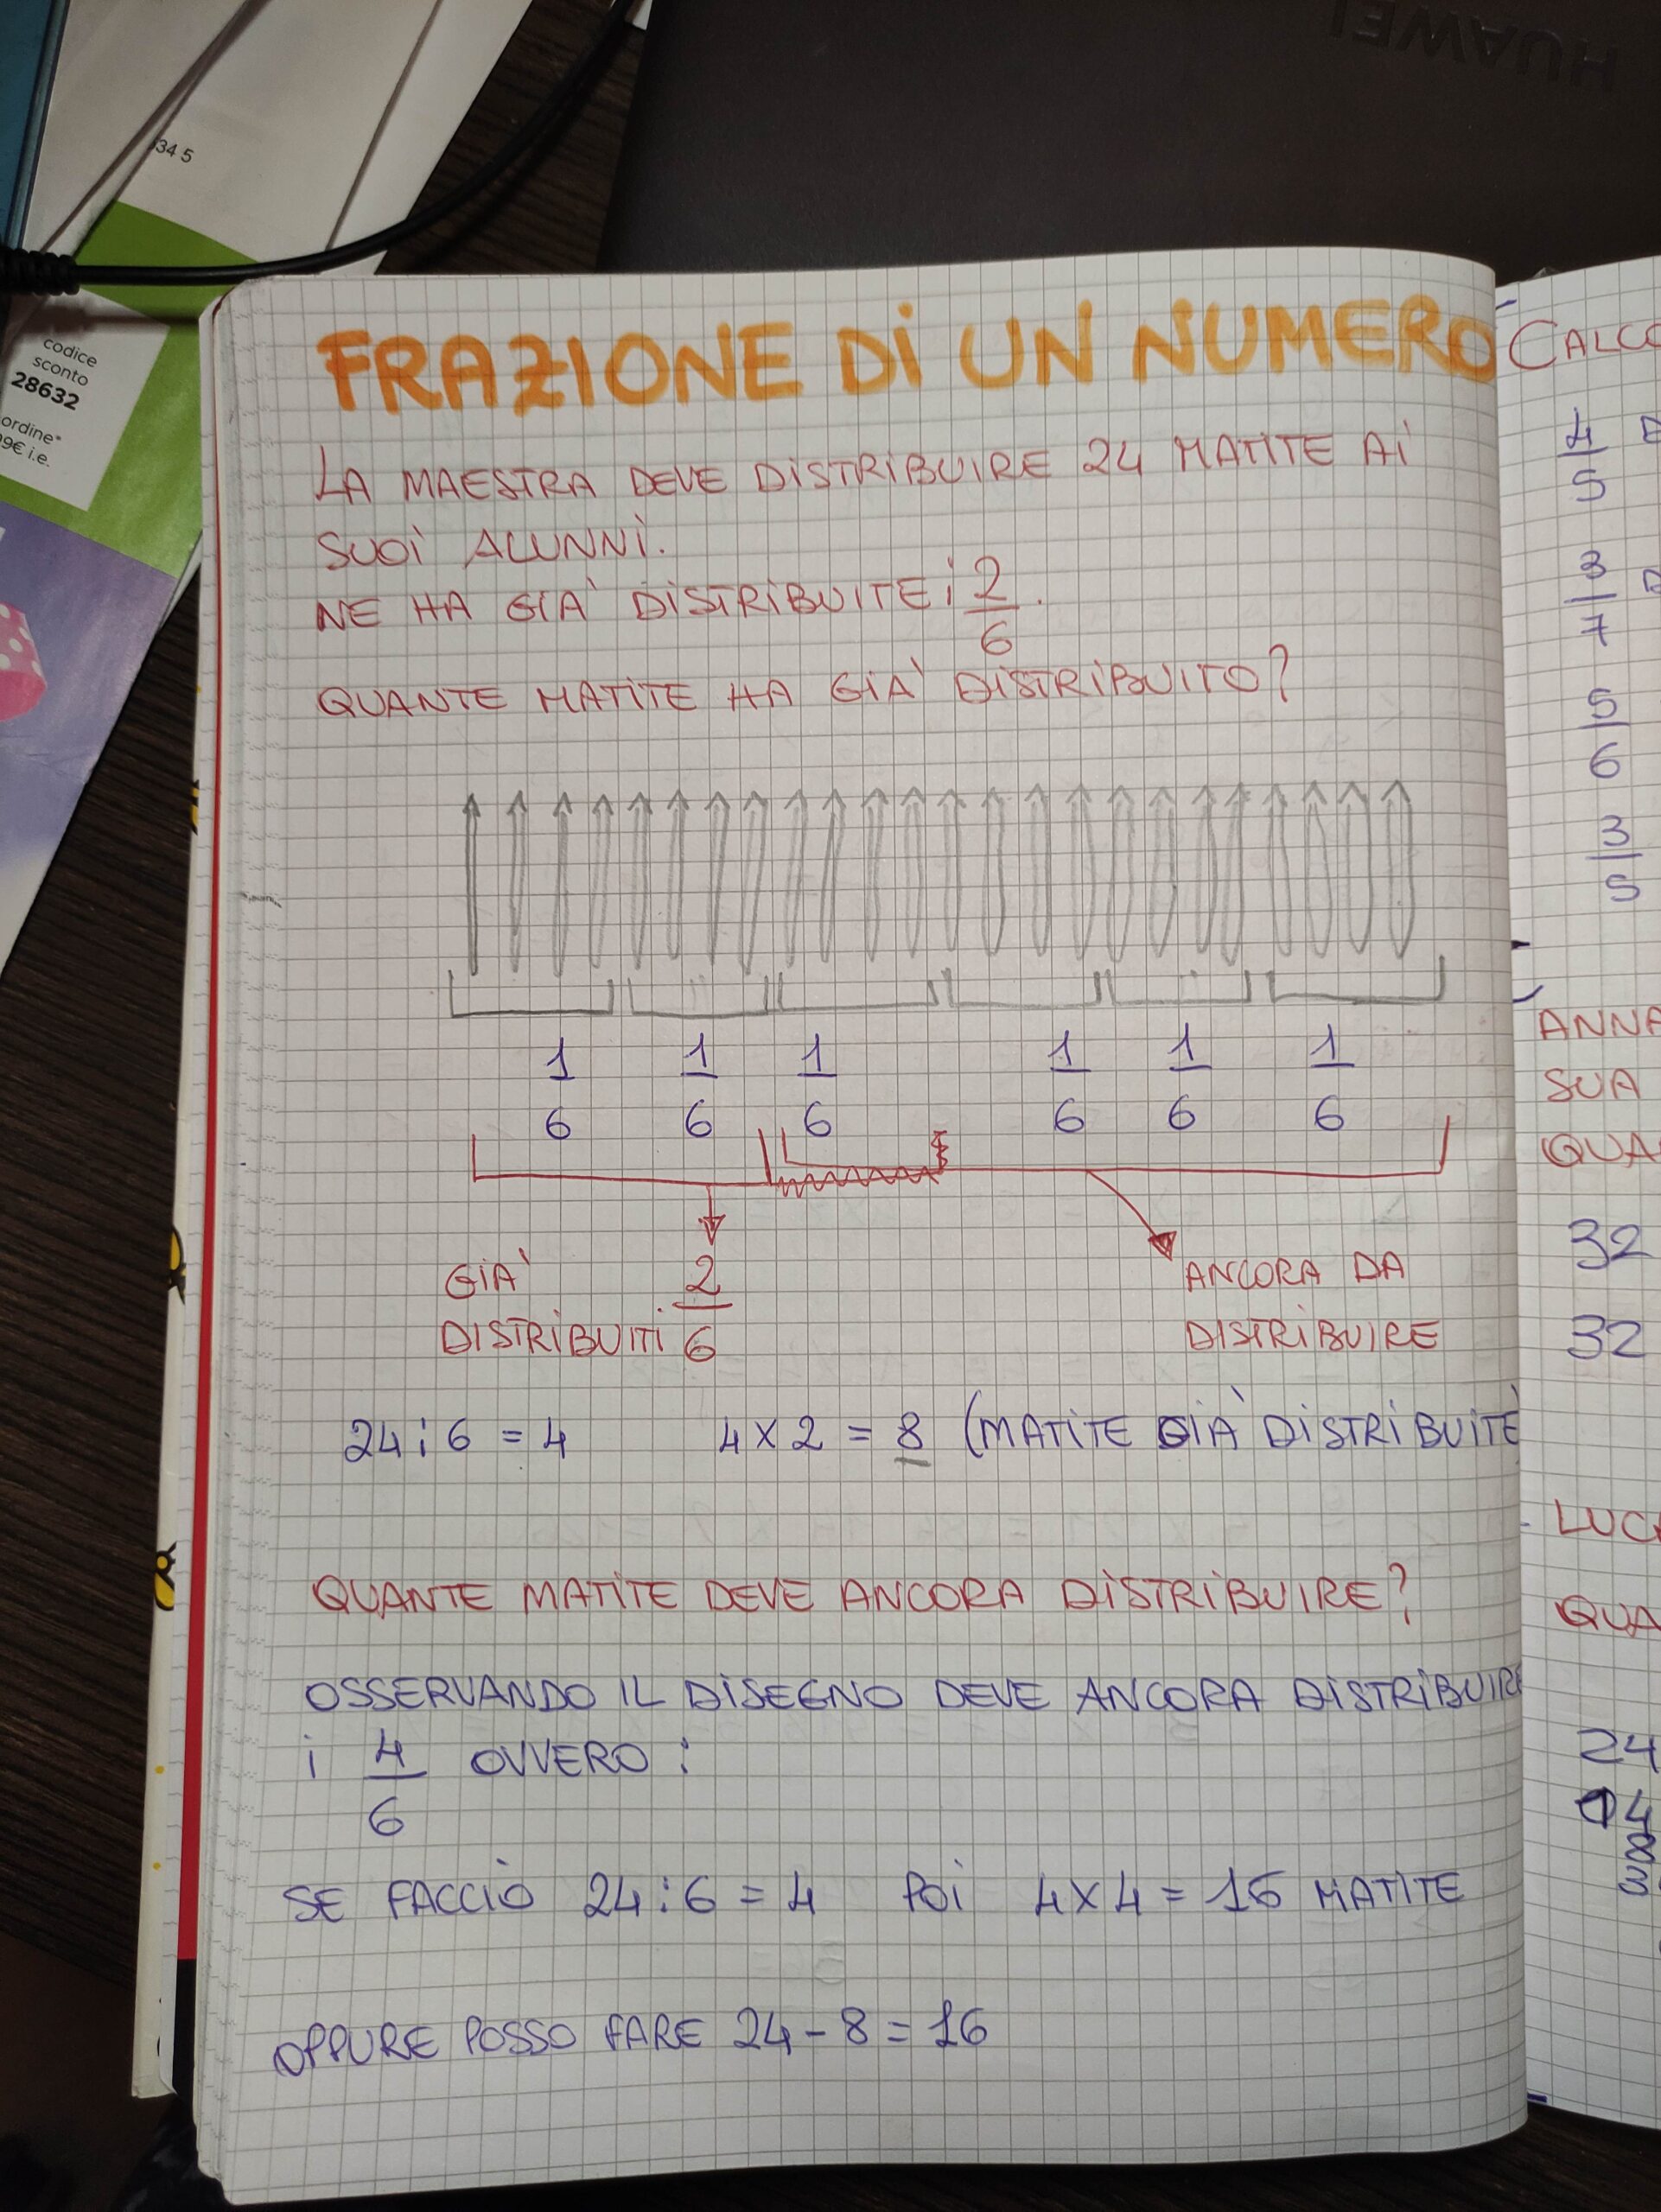 HUAWEI
34 5
codice
sconto
28632
ordine*
9€ i.e.
FRAZIONE DI UN NUMERO
LA MAESTRA DEVE DISTRIBUIRE 24 MATITE AI
SUOI ALUNNI.
NE HA GIA' DISTRIBUITE i 2/6.
QUANTE MATITE HA GIA' DISTRIBUITO?
1/6 1/6 1/6 1/6 1/6 1/6
GIA' DISTRIBUITI 2/6
ANCORA DA
DISTRIBUIRE
24 : 6 = 4 4 x 2 = 8 (MATITE GIA' DISTRIBUITE)
QUANTE MATITE DEVE ANCORA DISTRIBUIRE?
OSSERVANDO IL DISEGNO DEVE ANCORA DISTRIBUIRE
i 4/6 OVVERO :
SE FACCIO 24 : 6 = 4 POI 4 x 4 = 16 MATITE
OPPURE POSSO FARE 24 - 8 = 16
CALCO
4/5
3/7
5/6
3/5
ANNA
SUA
QUA
32
32
LUCA
QUA
24